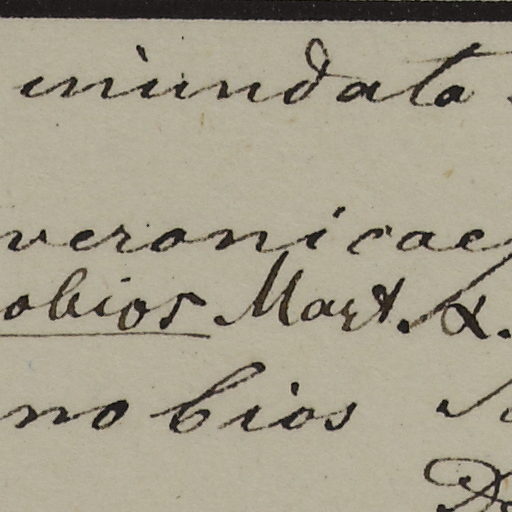 inundata
veronicae
obios Mart. α.
nobios